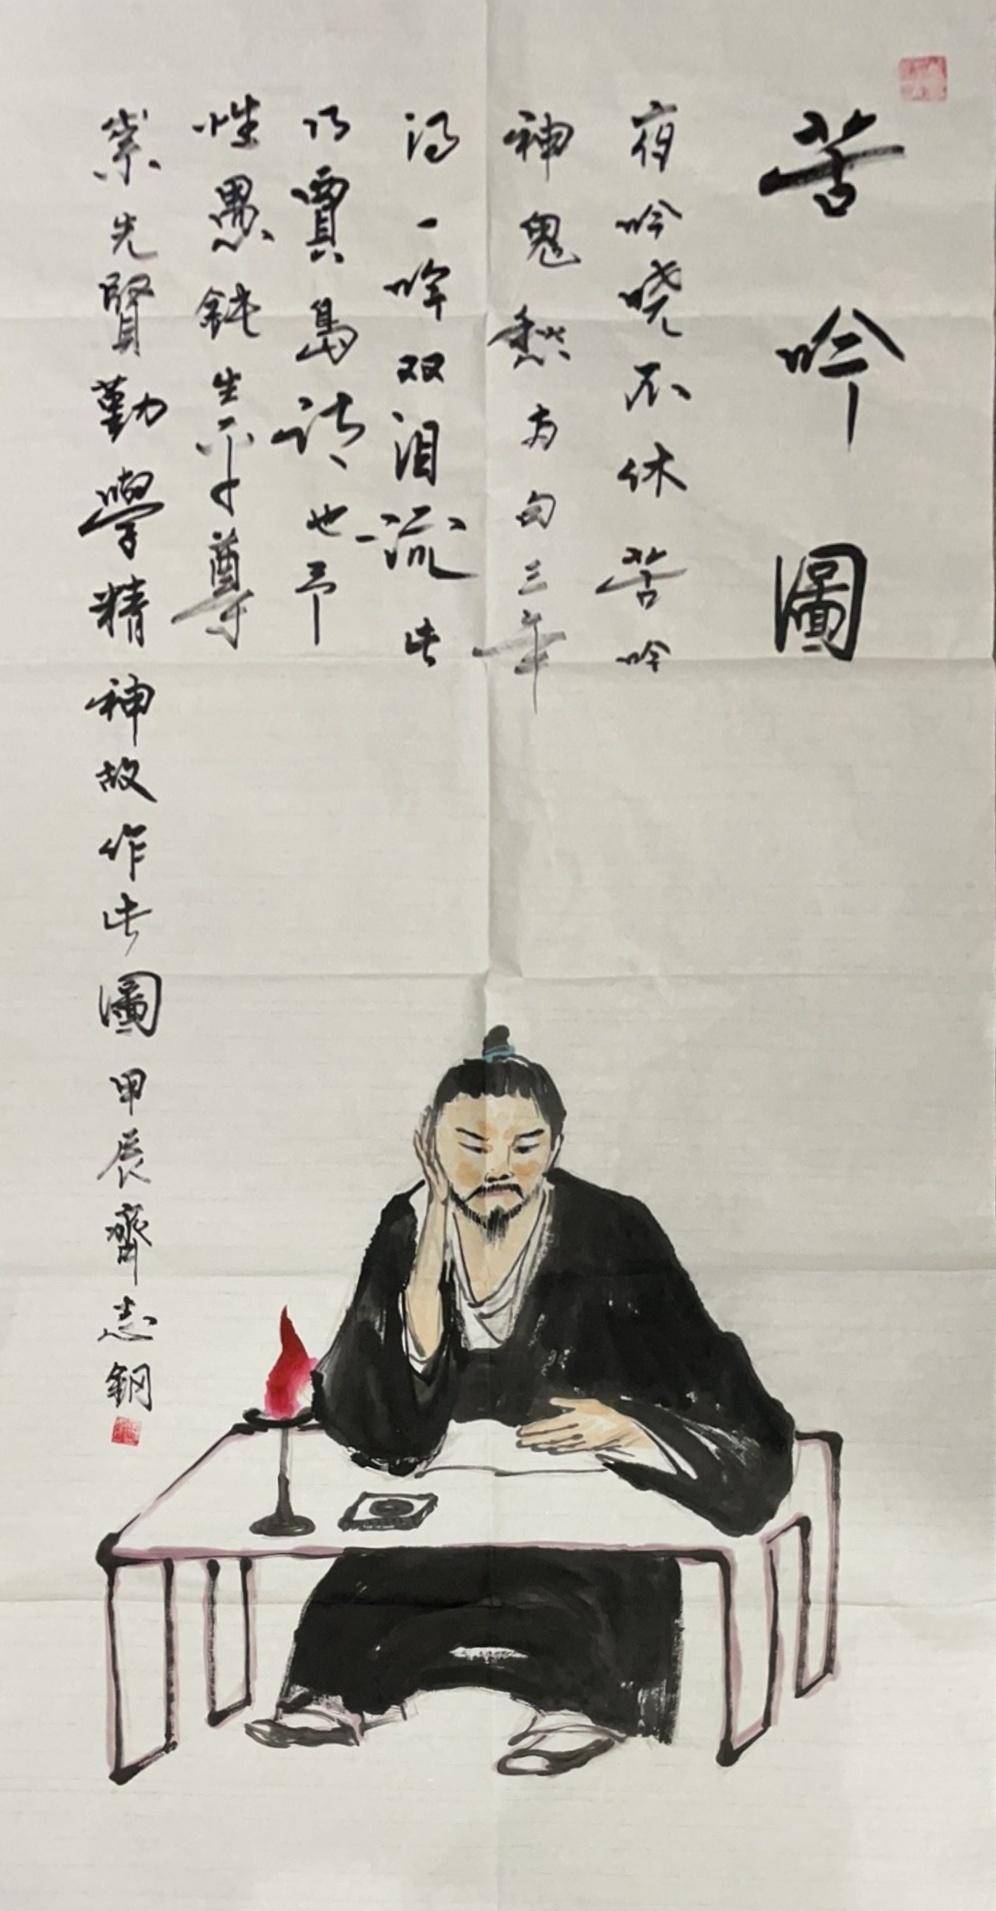 苦吟圖
夜吟晓不休苦吟
神鬼愁为句三年
得一吟双泪流此
乃賈島诗也予
性愚鈍生平尊
崇先賢勤學精神故作此圖甲辰齊志鋼